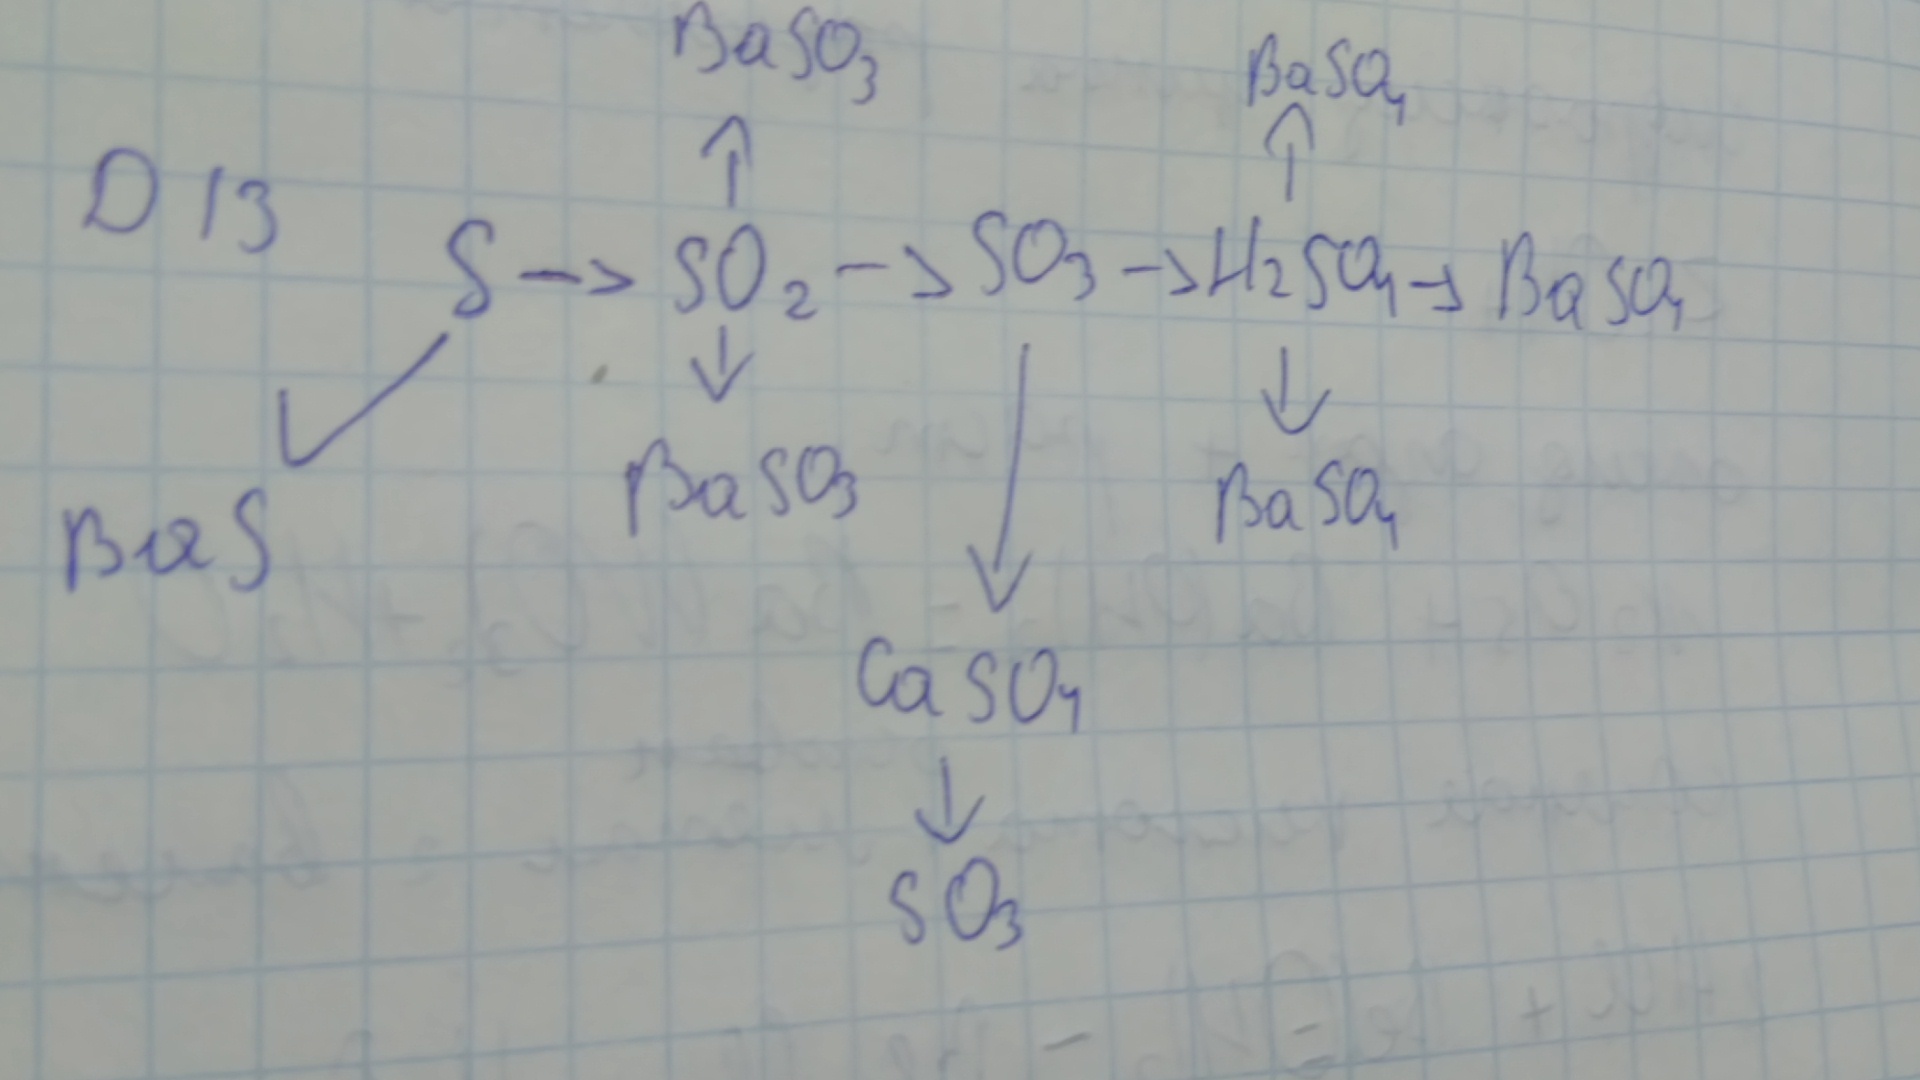 BaSO3 BaSO4
↑ ↑
D 13
S -> SO2 -> SO3 -> H2SO4 -> BaSO4
↙ ↓ ↓ ↓
BaS BaSO3 BaSO4
CaSO4
↓
SO3